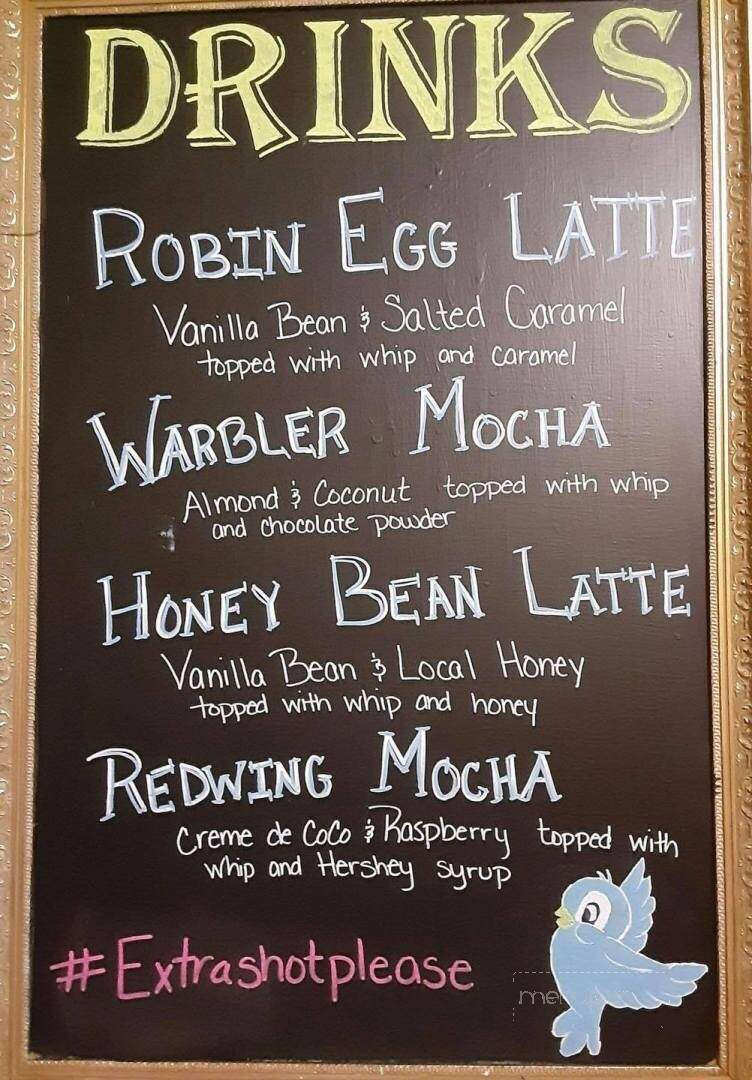 DRINKS
ROBIN EGG LATTE
Vanilla Bean & Salted Caramel
topped with whip and caramel
WARBLER MOCHA
Almond & Coconut topped with whip
and chocolate powder
HONEY BEAN LATTE
Vanilla Bean & Local Honey
topped with whip and honey
REDWING MOCHA
Creme de CoCo & Raspberry topped with
whip and Hershey syrup
#Extrashotplease